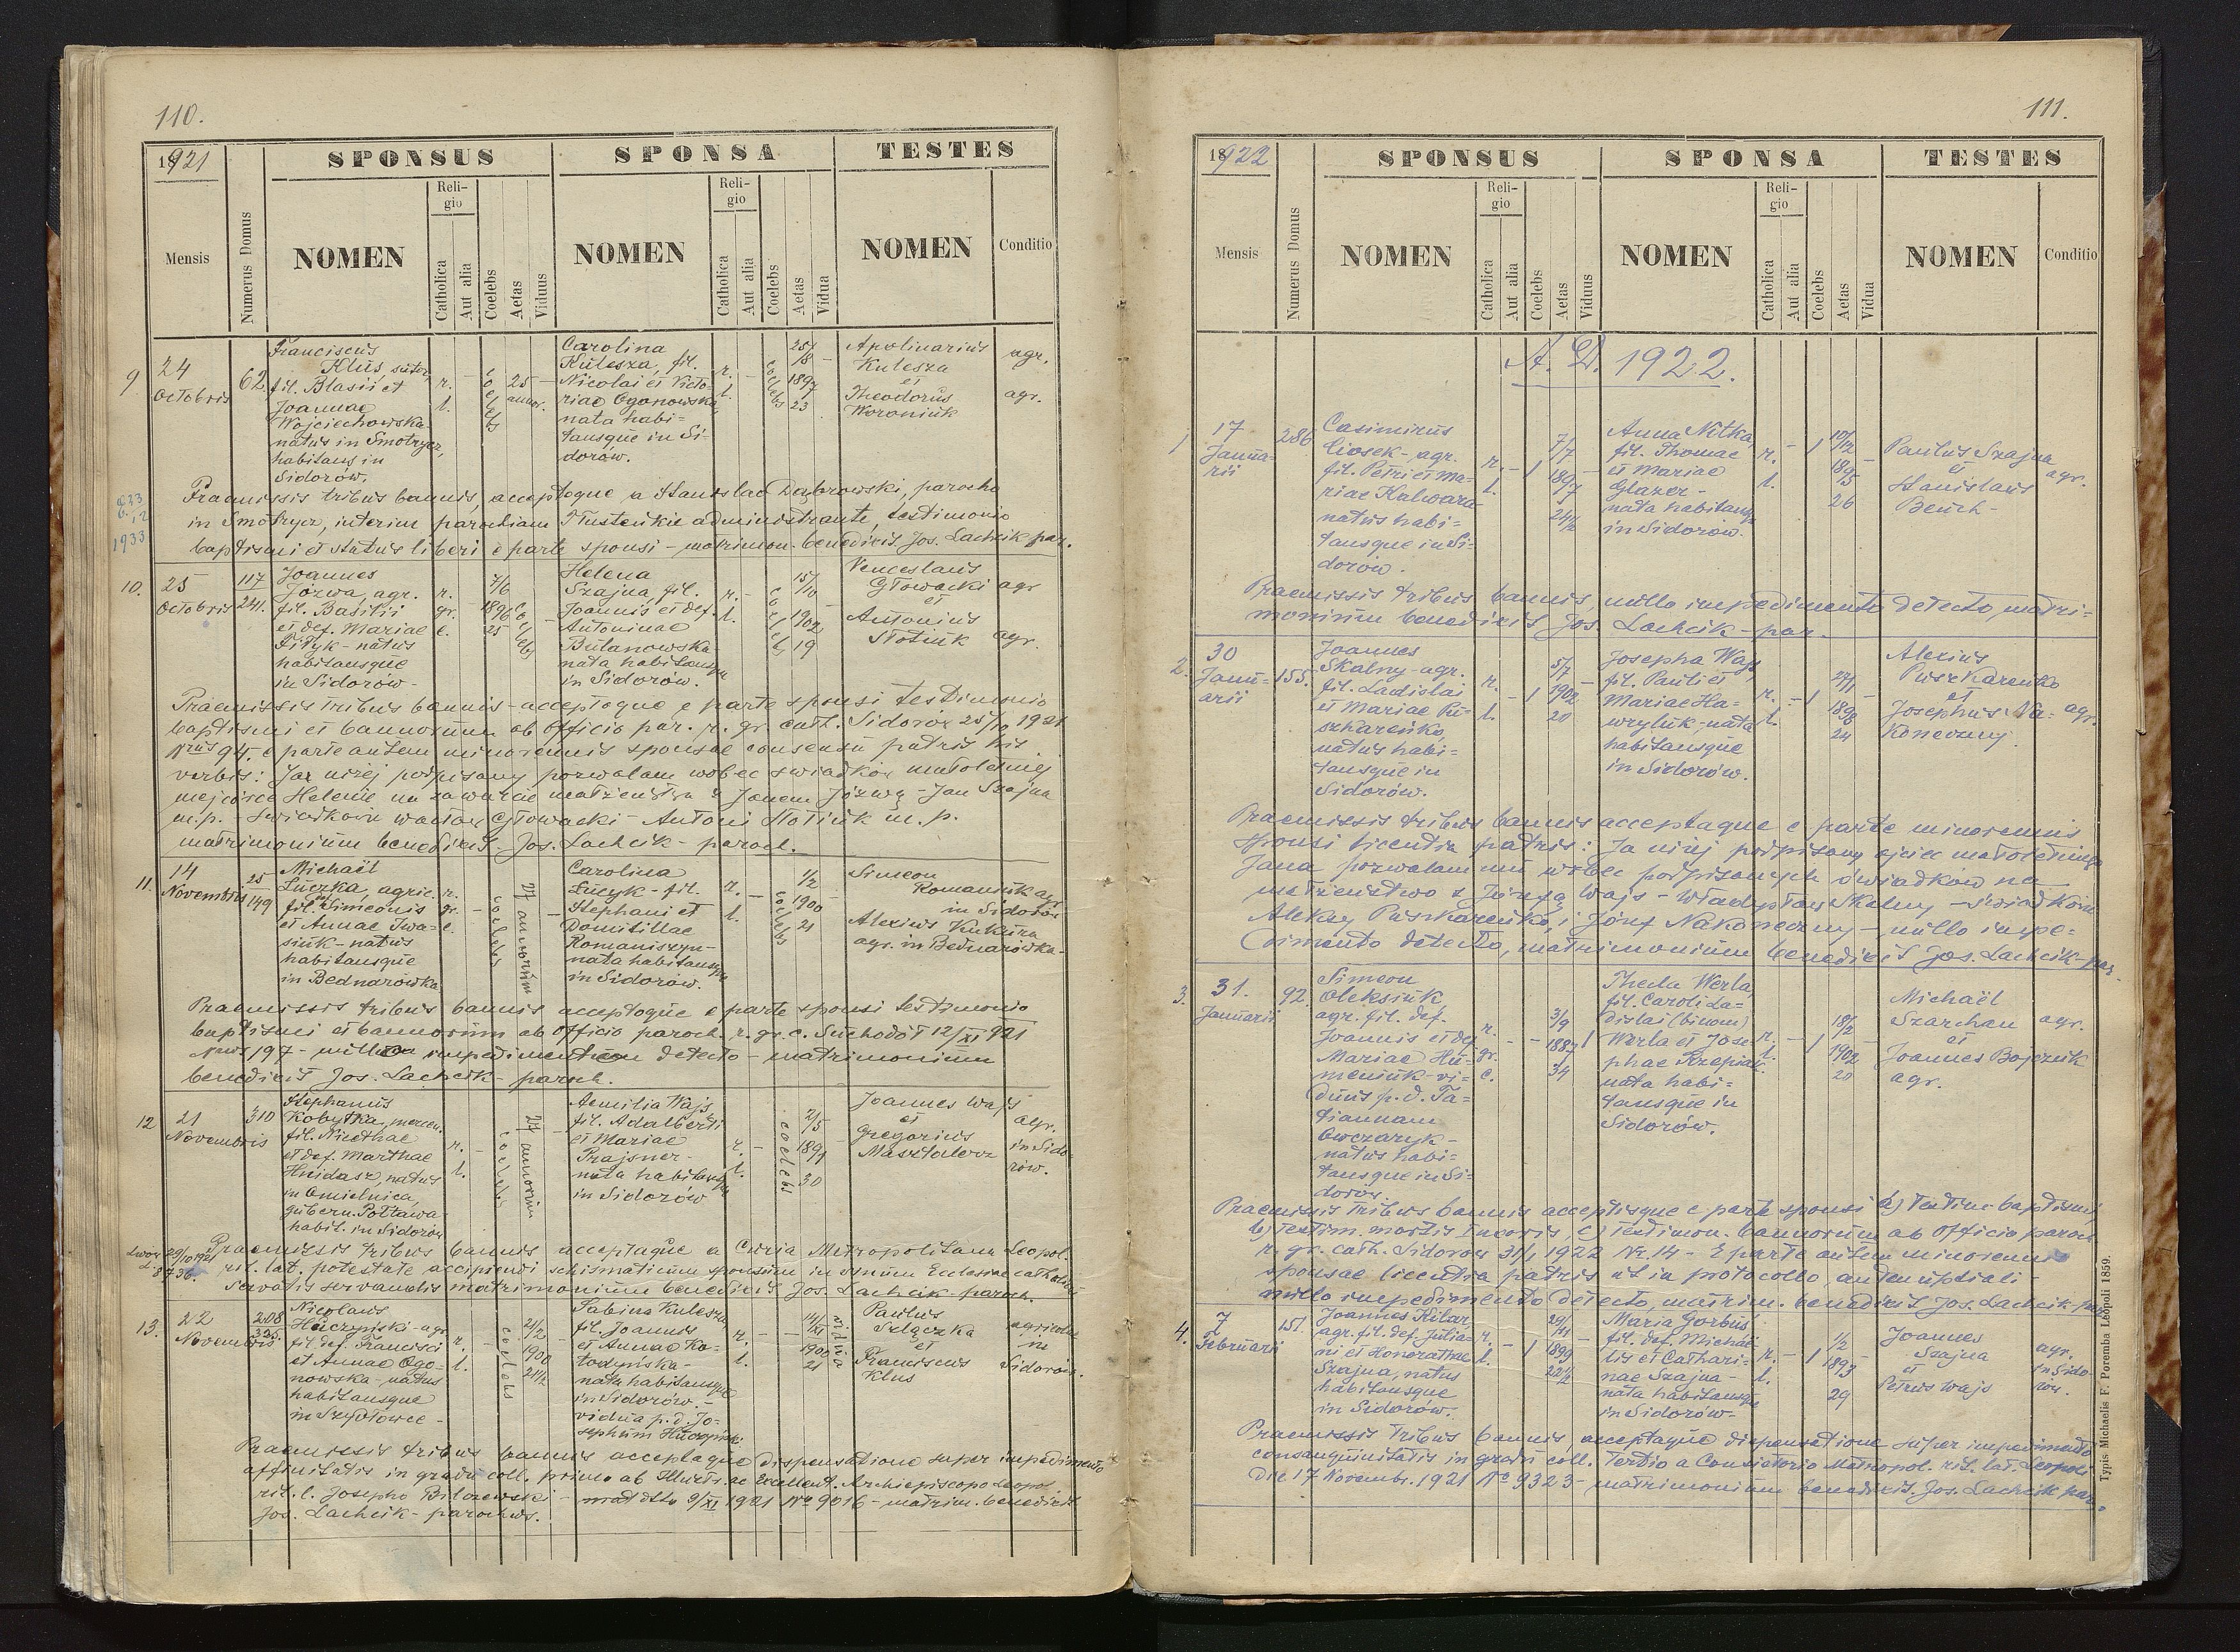 110.
1921
SPONSUS
SPONSA
TESTES
Mensis
Numerus Domus
NOMEN
Religio
Catholica
Aut alia
Coelebs
Aetas
Viduus
NOMEN
Religio
Catholica
Aut alia
Coelebs
Aetas
Vidua
NOMEN
Conditio
9
24
Octobris
62
Franciscus
Klus, sutor,
fil. Blasii et
Joannae
Wojciechowska
natus in Smotrycz,
habitans in
Sidorów.
r.
l.
coelebs
25
annor.
Carolina
Kulesza, fil.
Nicolai et Victo-
riae Ogonowska
nata habi=
tansque in Si-
dorów.
r.
l.
coelebs
25/8
1897
23
Apolinarius
Kulesza
et
Theodorus
Woroniuk
agr.
agr.
Praemissis tribus bannis, acceptoque a Stanislao Dąbrowski, parocho
in Smotrycz, interim parochiam Tłusteńkie administrante, testimonio
baptismi et status liberi e parte sponsi - matrimon. benedixit Jos. Lachcik par.
1933
10.
25
Octobris
117
241.
Joannes
Józwa, agr.
fil. Basilii
et def. Mariae
Fityk - natus
habitansque
in Sidorów -
r.
gr.
c.
7/6
1896
25
coelebs
Helena
Szajna, fil.
Joannis et def.
Antoninae
Bułanowska
nata habitansque
in Sidorów.
r.
l.
coelebs
15/10
1902
19
Venceslaus
Głowacki
et
Antonius
Słotiuk
agr
agr.
Praemissis tribus bannis - acceptoque e parte sponsi testimonio
baptismi et bannorum ab Officio par. r. gr. cath. Sidorów 25/10 1921
Nrus 94. e parte autem minorennis sponsae consensu patris his
verbis: Ja niżej podpisany pozwalam wobec świadków małoletniej
mej córce Helenie na zawarcie małżeństwa z Janem Józwą - Jan Szajna
m.p. - świadkowie Wacław Głowacki - Antoni Słotiuk m. p.
matrimonium benedixit Jos. Lachcik - paroch.
11.
14
Novembris
25
149
Michaël
Luczka, agric.
fil. Simeonis
et Annae Iwa=
siuk - natus
habitansque
in Bednarówka
r.
gr.
c.
coelebs
27 annorum
Carolina
Łucyk - fil.
Stephani et
Domitillae
Romaniszyn -
nata habitansque
in Sidorów.
r.
l.
coelebs
1/2
1900
21
Simeon
Romaniuk agr
in Sidorów
Alexius Kukura
agr. in Bednarówka -
Praemissis tribus bannis acceptoque e parte sponsi testimonio
baptismi et bannorum ab Officio paroch. r. gr. c. Suchodół 12/XI 921
Nrus 197 - nullo impedimento detecto - matrimonium
benedixit Jos. Lachcik - paroch.
12
21
Novembris
310
Stephanus
Kobytka, mercen.
fil. Nicethae
et def. Marthae
Hnidasz, natus
in Omielnica,
gubern. Połtawa
habit. in Sidorów
r.
l.
coelebs
27 annorum
Aemilia Wajs
fil. Adalberti
et Mariae
Prajsner -
nata habitansque
in Sidorów
r.
l.
coelebs
2/5
1891
30
Joannes Wajs
et
Gregorius
Masztalerz
agr.
in Sido
rów.
Lwów 29/10 1921
L. 8736.
Praemissis tribus bannis acceptaque a Curia Metropolitana Leopol.
rit. lat. potestate accipiendi schismaticum sponsum in sinum Ecclesiae catholicae
servatis servandis matrimonium benedixit Jos. Lachcik - paroch.
13.
22
Novembris
208
325.
Nicolaus
Huczyński - agr.
fil. def. Francisci
et Annae Ogo=
nowska - natus
habitansque
in Szydłowce -
r.
l.
coelebs
2/2
1900
21 1/2
Sabina Kulesza
fil. Joannis
et Annae Ko=
todyńska -
nata habitansque
in Sidorów. -
vidua p. d. Jo=
sephum Huczyński
r.
l.
14/XI
1900
21
vidua
Paulus
Szlączka
et
Franciscus
Klus
agricolae
in
Sidorów.
Praemissis tribus bannis acceptaque dispensatione super impedimento
affinitatis in gradu coll. primo ab Illustr. ac Excellent. Archiepiscopo Leopol.
rit. l. Josepho Bilczewski - ddto 9/XI 1921 No 9016 - matrim. benedixit
Jos. Lachcik - parochus.
111.
1922
SPONSUS
SPONSA
TESTES
Mensis
Numerus Domus
NOMEN
Religio
Catholica
Aut alia
Coelebs
Aetas
Viduus
NOMEN
Religio
Catholica
Aut alia
Coelebs
Aetas
Vidua
NOMEN
Conditio
A. D. 1922.
1
17
Janua-
rii
286
Casimirus
Ciosek - agr.
fil. Petri et Ma-
riae Kalwara -
natus habi=
tansque in Si-
dorów.
r.
l.
1
7/7
1897
24 1/2
Anna Nitka,
fil. Thomae
et Mariae
Glazer -
nata habitansque
in Sidorów.
r.
l.
1
10/12
1895
26
Paulus Szajna
et
Stanislaus
Beuch -
agr.
Praemissis tribus bannis, nullo impedimento detecto, matri=
monium benedixit Jos. Lachcik - par.
2.
30
Janu=
arii
155.
Joannes
Skalny - agr.
fil. Ladislai
et Mariae Pu=
szkareńko,
natus habi=
tansque in
Sidorów.
r.
l.
1
5/7
1902
20
Josepha Wajs,
fil. Pauli et
Mariae Ha=
wryluk, nata
habitansque
in Sidorów.
r.
l.
1
27/1
1898
24
Alexius
Puszkareńko
et
Josephus Na=
koneczny.
agr.
Praemissis tribus bannis acceptaque e parte minorennis
sponsi licentia patris: Ja niżej podpisany ojciec małoletniego
Jana pozwalam mu wobec podpisanych świadków na
małżeństwo z Józefą Wajs - Władysław Skalny - świadkowie
Aleksy Puszkareńko, i Józef Nakoneczny - nullo impe=
dimento detecto, matrimonium benedixit Jos. Lachcik - par.
3.
31.
Januarii
92.
Simeon
Oleksiuk,
agr. fil. def.
Joannis et def.
Mariae Hu=
meniuk - vi=
duus p. d. Ta=
tiannam
Owczaryk -
natus habi=
tansque in Si=
dorów.
r.
gr.
c.
3/9
1887
34
1
Thecla Werla,
fil. Caroli La=
dislai (binom)
Werla et Jose=
phae Krzepiak
nata habi=
tansque in
Sidorów.
r.
l.
1
18/2
1902
20
Michaël
Szarchan
et
Joannes Bojcziuk
agr.
agr.
Praemissis tribus bannis acceptisque e parte sponsi a) testim. baptismi,
b) testim. mortis Uxoris, c) testimon. bannorum ab Officio paroch
r. gr. cath. Sidorów 31/1 1922 Nr. 14 - E parte autem minorennis
sponsae licentia patris ut in protocollo antenuptiali -
nullo impedimento detecto, matrim. benedixit Jos. Lachcik - par.
4.
7
Februarii
151.
Joannes Kitar,
agr. fil. def. Julia=
ni et Honorathae
Szajna, natus
habitansque
in Sidorów.
r.
l.
1
29/XI
1899
22 1/2
Maria Gorbus
fil. def. Michaë=
lis et Cathari=
nae Szajna -
nata habitansque
in Sidorów -
r.
l.
1
1/2
1893
29
Joannes
Szajna
et
Petrus Wajs
agr.
in Sido
rów.
Praemissis tribus bannis, acceptaque dispensatione super impedimento
consanguinitatis in gradu coll. tertio a Consistorio Metropol. rit. lat. Leopoli
die 17 Novembr. 1921 No 9323 - matrimonium benedixit. Jos. Lachcik par.
Typis Michaelis F. Poremba Leopoli 1859.